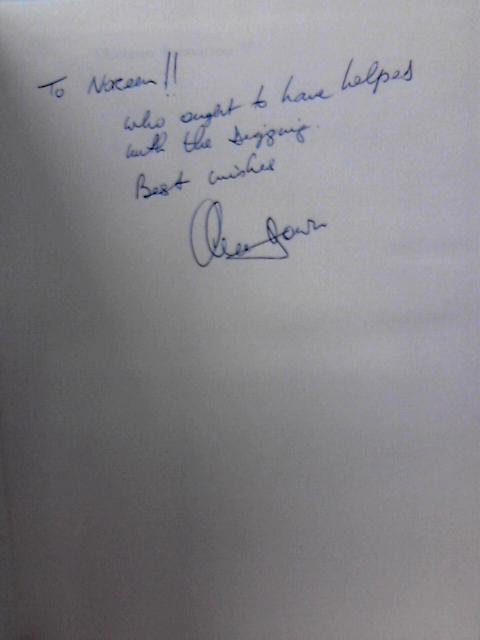 To Noreen!!
who ought to have helped
with the digging.
Best wishes